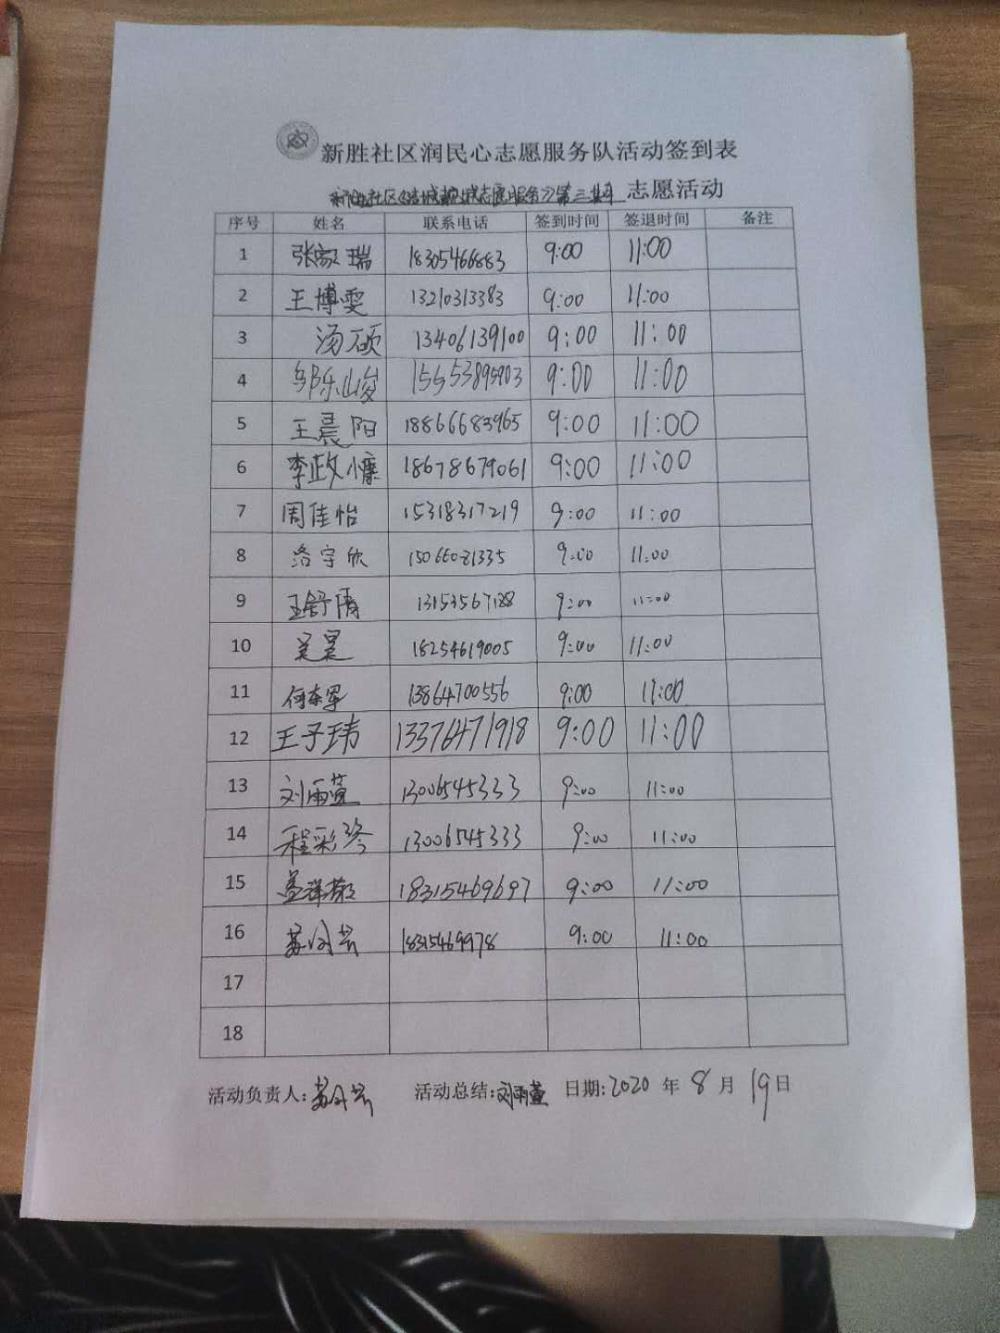 新胜社区润民心志愿服务队活动签到表
志愿服务》第三期 志愿活动
序号 姓名 联系电话 签到时间 签退时间 备注
1 张家瑞 18305466883 9:00 11:00
2 王博雯 13210313383 9:00 11:00
3 汤硕 13406139100 9:00 11:00
4 邹乐山峻 9:00 11:00
5 王晨阳 18866683965 9:00 11:00
6 李政慷 18678679061 9:00 11:00
7 周佳怡 15318317219 9:00 11:00
8 洛宇欣 9:00 11:00
9 王舒倩 9:00 11:00
10 吴昊 18254619005 9:00 11:00
11 13864700556 9:00 11:00
12 王子玮 13376471918 9:00 11:00
13 刘雨萱 13006545333 9:00 11:00
14 程彩琴 13006545333 9:00 11:00
15 18315469697 9:00 11:00
16 18315469978 9:00 11:00
17
18
活动负责人: 活动总结:刘雨萱 日期:2020 年 8 月 19 日